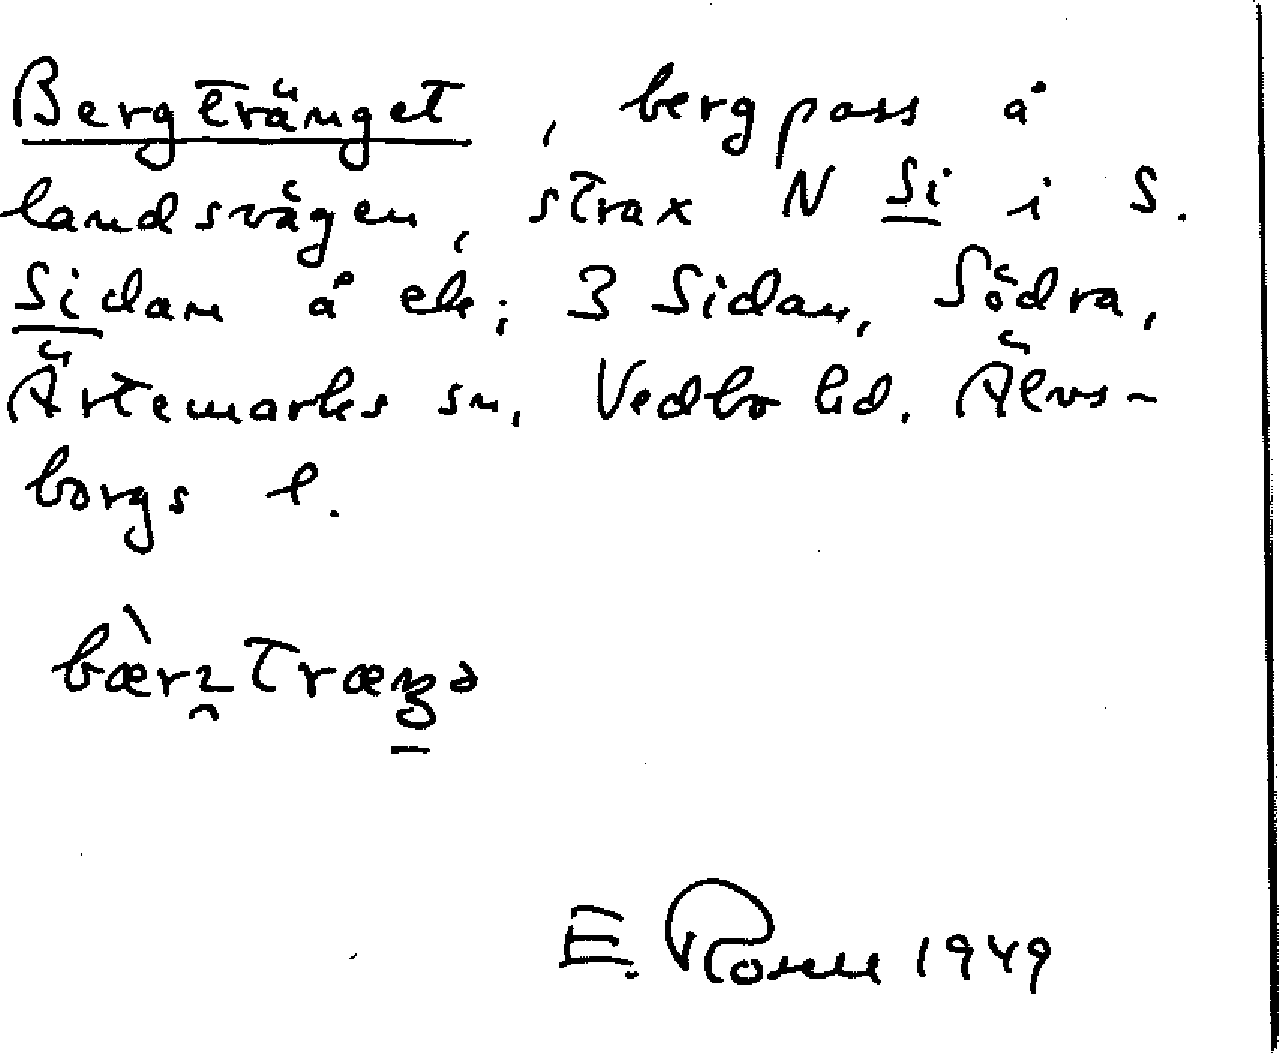 Bergtränget, bergpass å
landsvägen, strax N Si i S.
Sidan å ek; 3 Sidan, Södra,
Ärtemarks sn, Vedbo hd. Älvs-
borgs l.
E. Rosell 1949